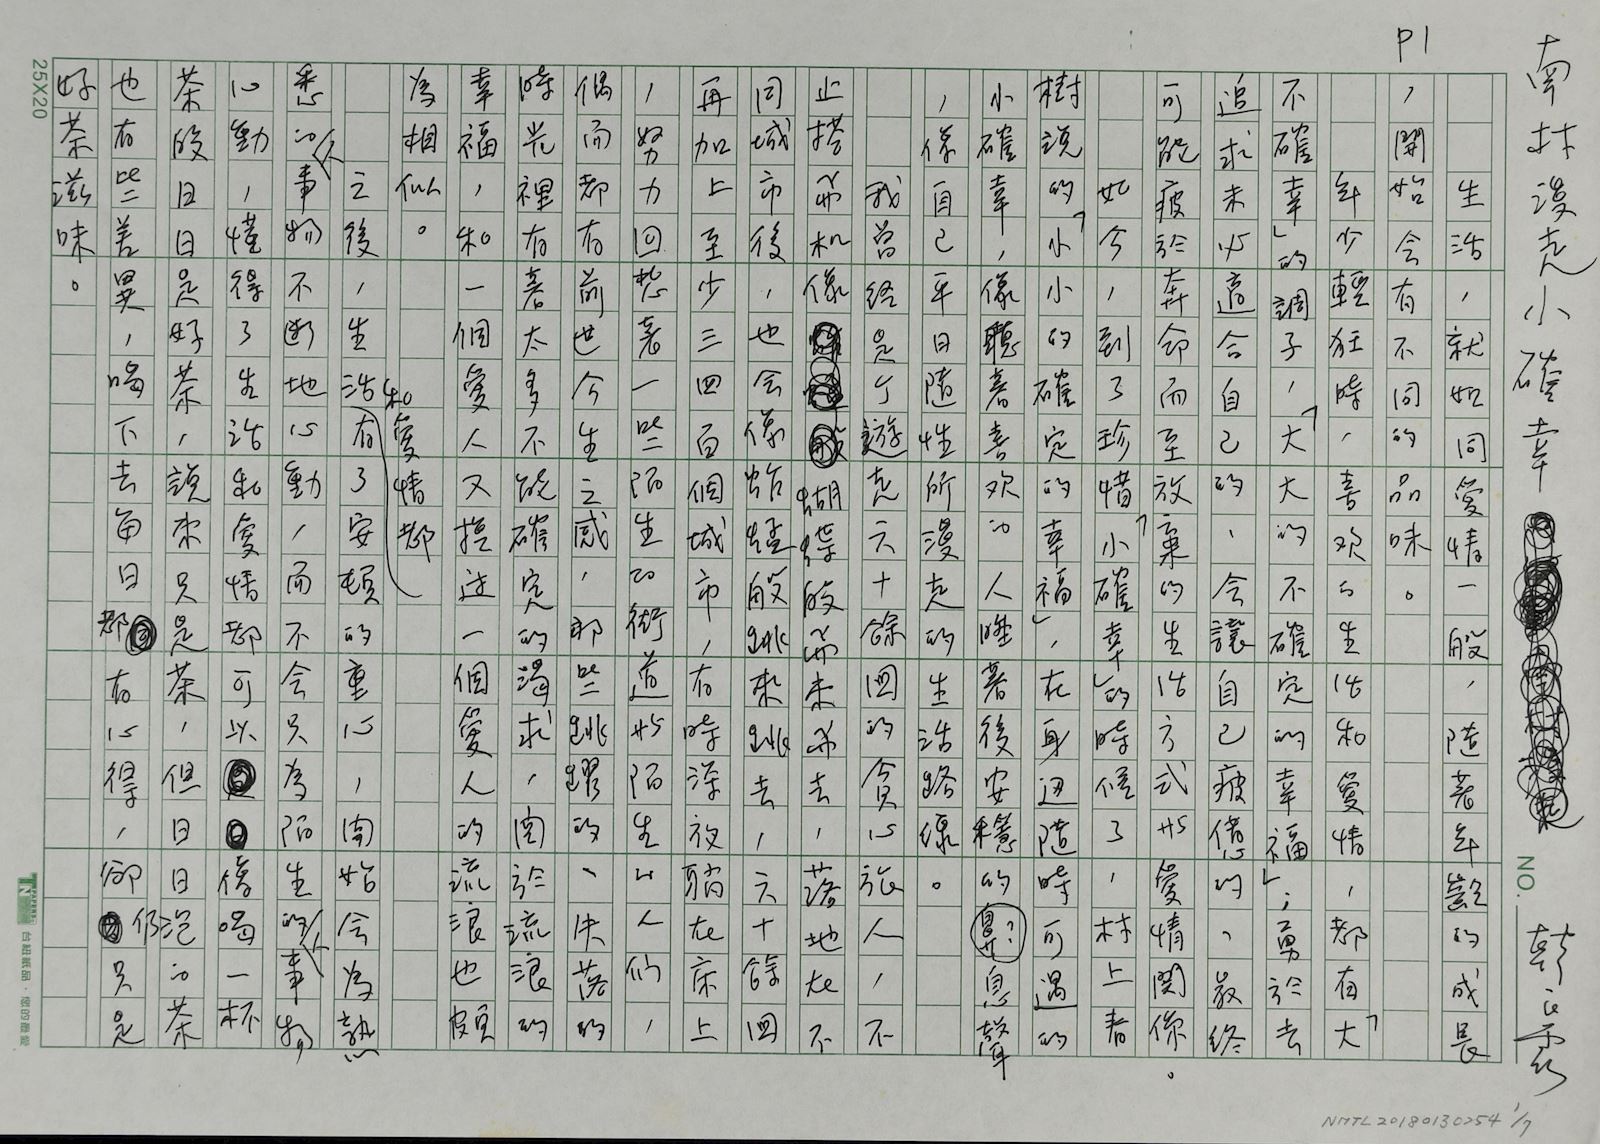 P1
南林漫克小確幸
NO.
韓良露
生活，就如同愛情一般，隨著年齡的成長
，開始会有不同的品味。
年少輕狂時，喜欢的生活和愛情，都有「大
不確幸」的調子，「大大的不確定的幸福」；勇於去
追求未必適合自己的、会讓自己疲倦的、最終
可能疲於奔命而至放棄的生活方式與愛情、関係。
如今，到了珍惜「小確幸」的時候了，村上春
樹說的「小小的確定的幸福」，在身边隨時可遇的
小確幸，像聽著喜欢的人睡著後安穩的鼻？息聲
，像自己平日隨性所漫走的生活路線。
我曾经是个遊走六十餘囯的貪心旅人，不
止搭飛机像蝴蝶般飛來飛去，落地在不
同城市後，也会像蛞蜢般跳來跳去，六十餘囯
再加上至少三四百個城市，有時深夜，躺在床上
，努力回想著一些陌生的街道與陌生的人们，
偶而都有前世今生之感，那些跳躍的、失落的
時光裡有著太多不能確定的渴求，関於流浪的
幸福，和一個愛人又換过一個愛人的流浪也頗
為相似。
之後，生活和愛情都有了安頓的重心，開始会為熟
悉的人事物不断地心動，而不会只為陌生的人事物
心動，懂得了生活和愛情都可以像喝一杯
茶般日日是好茶，說來只是茶，但日日泡的茶
也有些差異，喝下去每日都有心得，卻仍只是
好茶滋味。
25X20
台紙紙品・您的最愛
NMTL20180130254 1/7